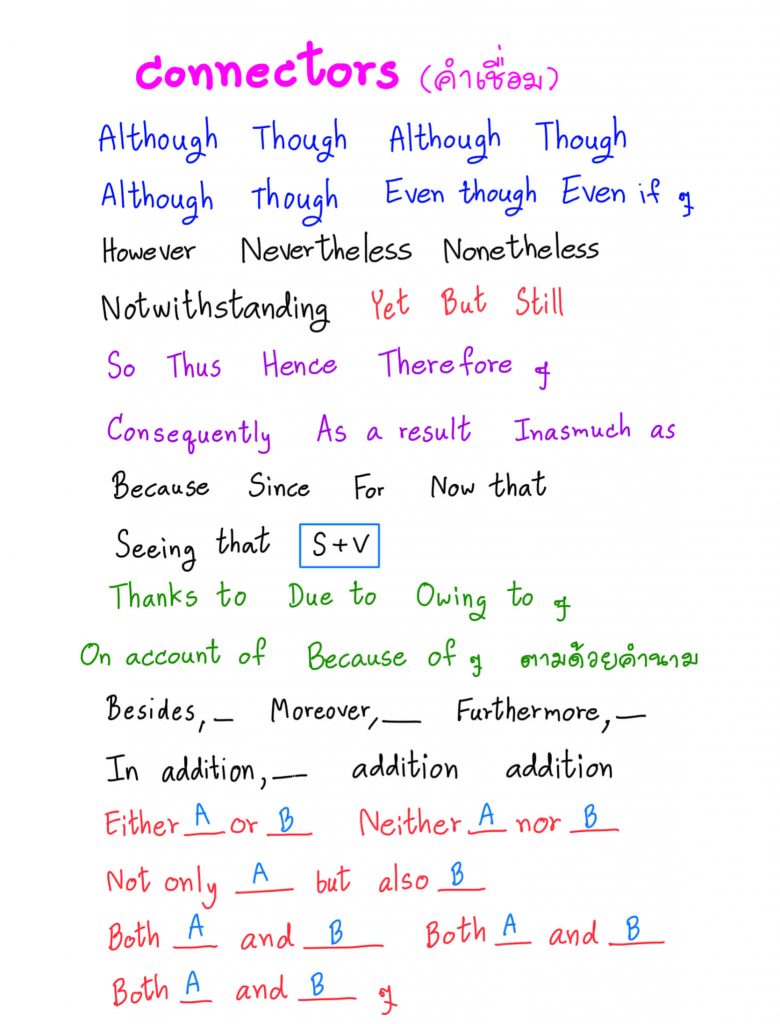 connectors (คำเชื่อม)
Although Though Although Though
Although Though Even though Even if ๆ
However Nevertheless Nonetheless
Notwithstanding Yet But Still
So Thus Hence Therefore ๆ
Consequently As a result Inasmuch as
Because Since For Now that
Seeing that S+V
Thanks to Due to Owing to ๆ
On account of Because of ๆ ตามด้วยคำนาม
Besides,_ Moreover,__ Furthermore,_
In addition,__ addition addition
Either A or B Neither A nor B
Not only A but also B
Both A and B Both A and B
Both A and B ๆ